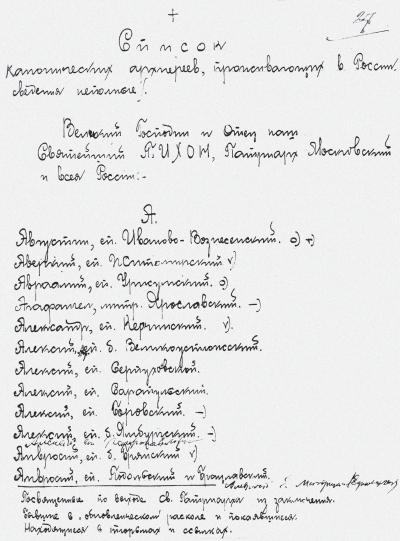 Список
канонических архиереев, проживающих в России.
сведения неполные).
Великий Господин и Отец наш
Святейший ТИХОН, Патриарх Московский
и всея России:-
А.
Августин, еп. Иваново-Вознесенский. о) +)
Аверкий, еп. Житомирский v)
Авраамий, еп. Уржумский. о)
Агафангел, митр. Ярославский. –)
Александр, еп. Керчинский. v).
Алексий, еп. б. Великоустюжский.
Алексий, еп. Серпуховской.
Алексий, еп. Сарапульский.
Алексий, еп. Боровский. –)
Алексий, еп. б. Ямбургский. –)
Амвросий, еп. б. Брянский v)
Амвросий, еп. Подольский и Брацлавский.
Посвященные по выходе Св. Патриарха из заключения.
Бывшие в обновленческом расколе и покаявшиеся.
Находящиеся в тюрьмах и ссылках.